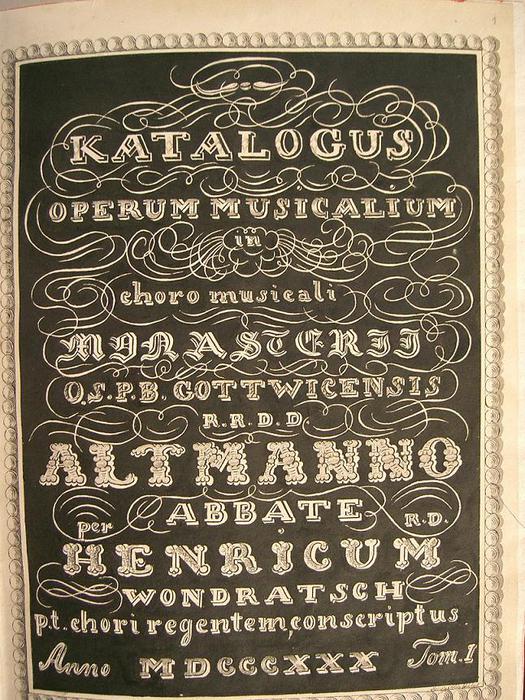 KATALOGUS
OPERUM MUSICALIUM
in
choro musicali
MONASTERII
O.S.P.B. GOTTWICENSIS
R.R.D.D.
ALTMANNO
ABBATE
per R.D.
HENRICUM
WONDRATSCH
pt. chori regentem, conscriptus.
Anno MDCCCXXX Tom. I